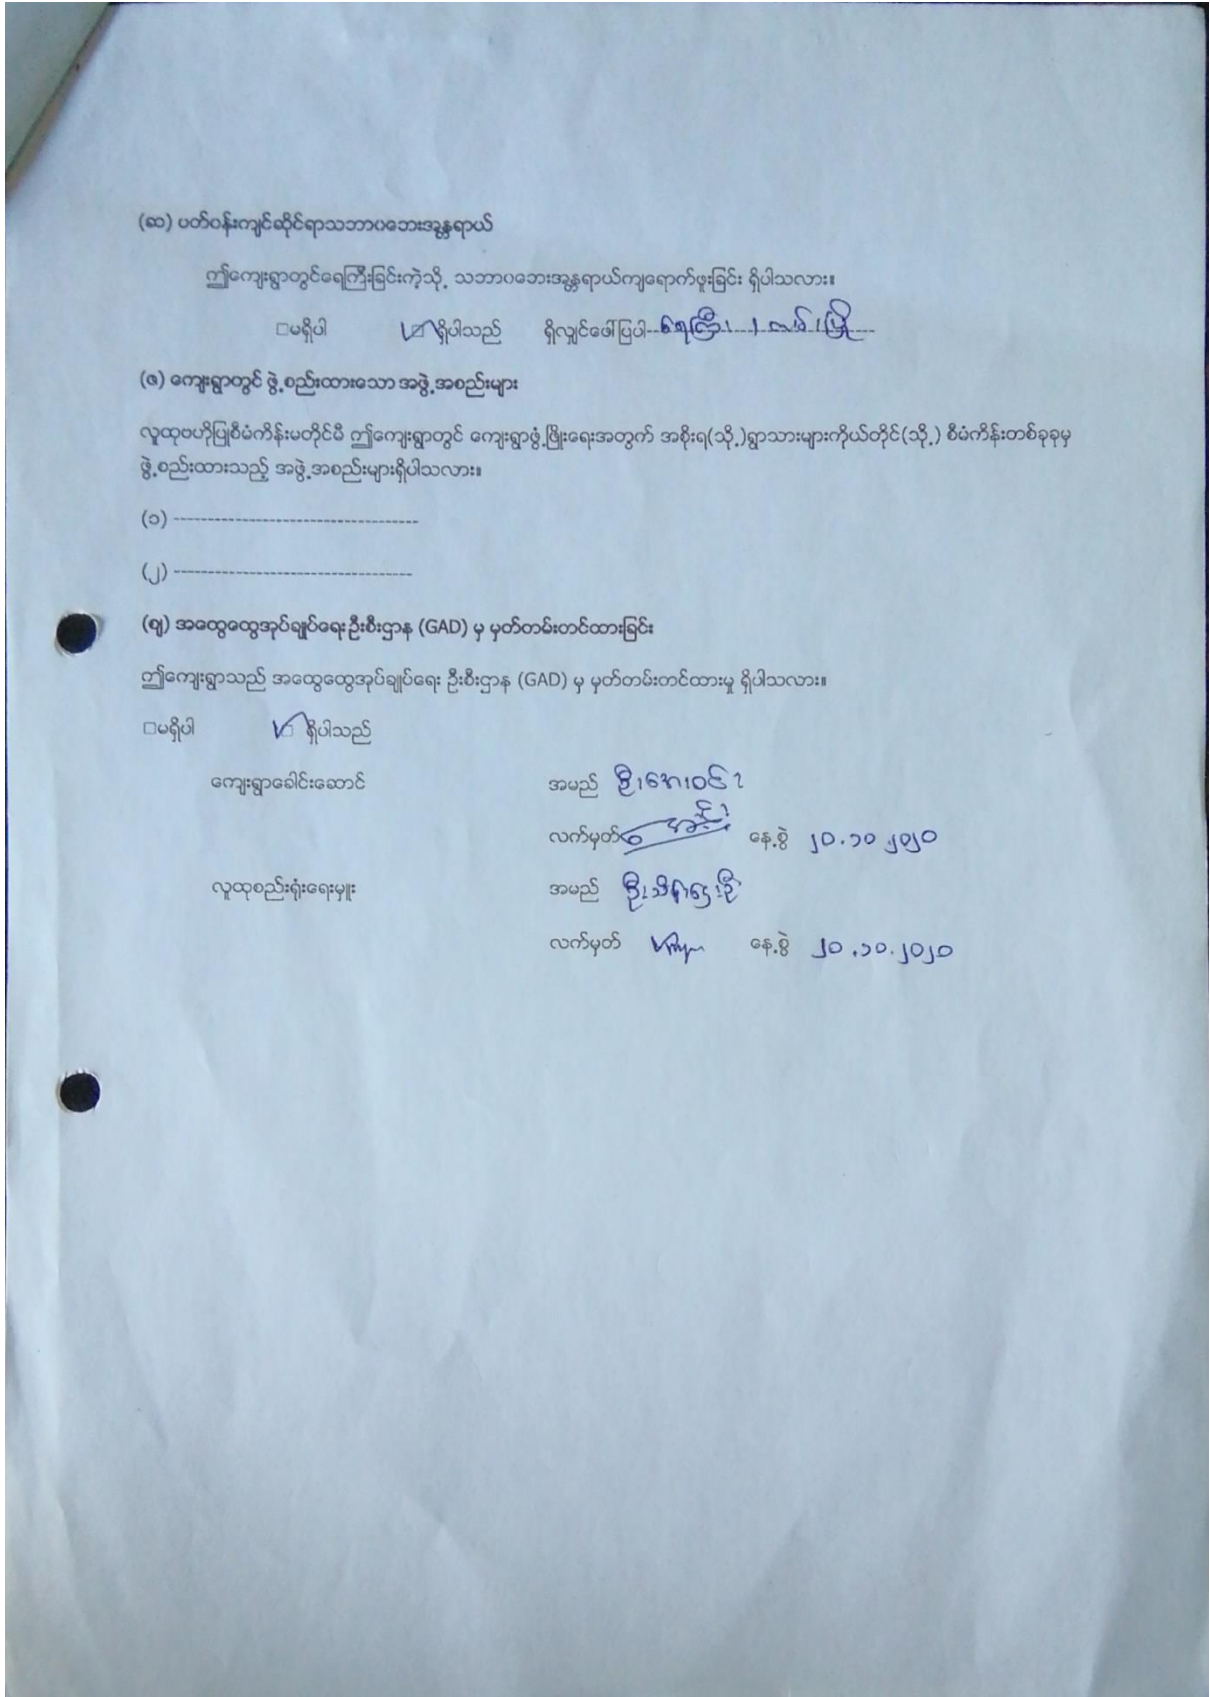 (ဆ) ပတ်ဝန်းကျင်ဆိုင်ရာသဘာဝဘေးအန္တရာယ်
ဤကျေးရွာတွင်ရေကြီးခြင်းကဲ့သို့ သဘာဝဘေးအန္တရာယ်ကျရောက်ဖူးခြင်း ရှိပါသလား။
□မရှိပါ ☑ရှိပါသည် ရှိလျှင်ဖော်ပြပါ--ရေကြီး၊ ကမ်းပြို
(ဇ) ကျေးရွာတွင် ဖွဲ့စည်းထားသော အဖွဲ့အစည်းများ
လူထုဗဟိုပြုစီမံကိန်းမတိုင်မီ ဤကျေးရွာတွင် ကျေးရွာဖွံ့ဖြိုးရေးအတွက် အစိုးရ(သို့)ရွာသားများကိုယ်တိုင်(သို့) စီမံကိန်းတစ်ခုခုမှ
ဖွဲ့စည်းထားသည့် အဖွဲ့အစည်းများရှိပါသလား။
(၁) ------------------------------------
(၂) -----------------------------------
(ဈ) အထွေထွေအုပ်ချုပ်ရေးဦးစီးဌာန (GAD) မှ မှတ်တမ်းတင်ထားခြင်း
ဤကျေးရွာသည် အထွေထွေအုပ်ချုပ်ရေး ဦးစီးဌာန (GAD) မှ မှတ်တမ်းတင်ထားမှု ရှိပါသလား။
□မရှိပါ ☑ ရှိပါသည်
ကျေးရွာခေါင်းဆောင် အမည် ဦးအေးဝင်း
လက်မှတ် နေ့စွဲ ၂၀.၁၀.၂၀၂၀
လူထုစည်းရုံးရေးမှူး အမည်
လက်မှတ် နေ့စွဲ ၂၀.၁၀.၂၀၂၀